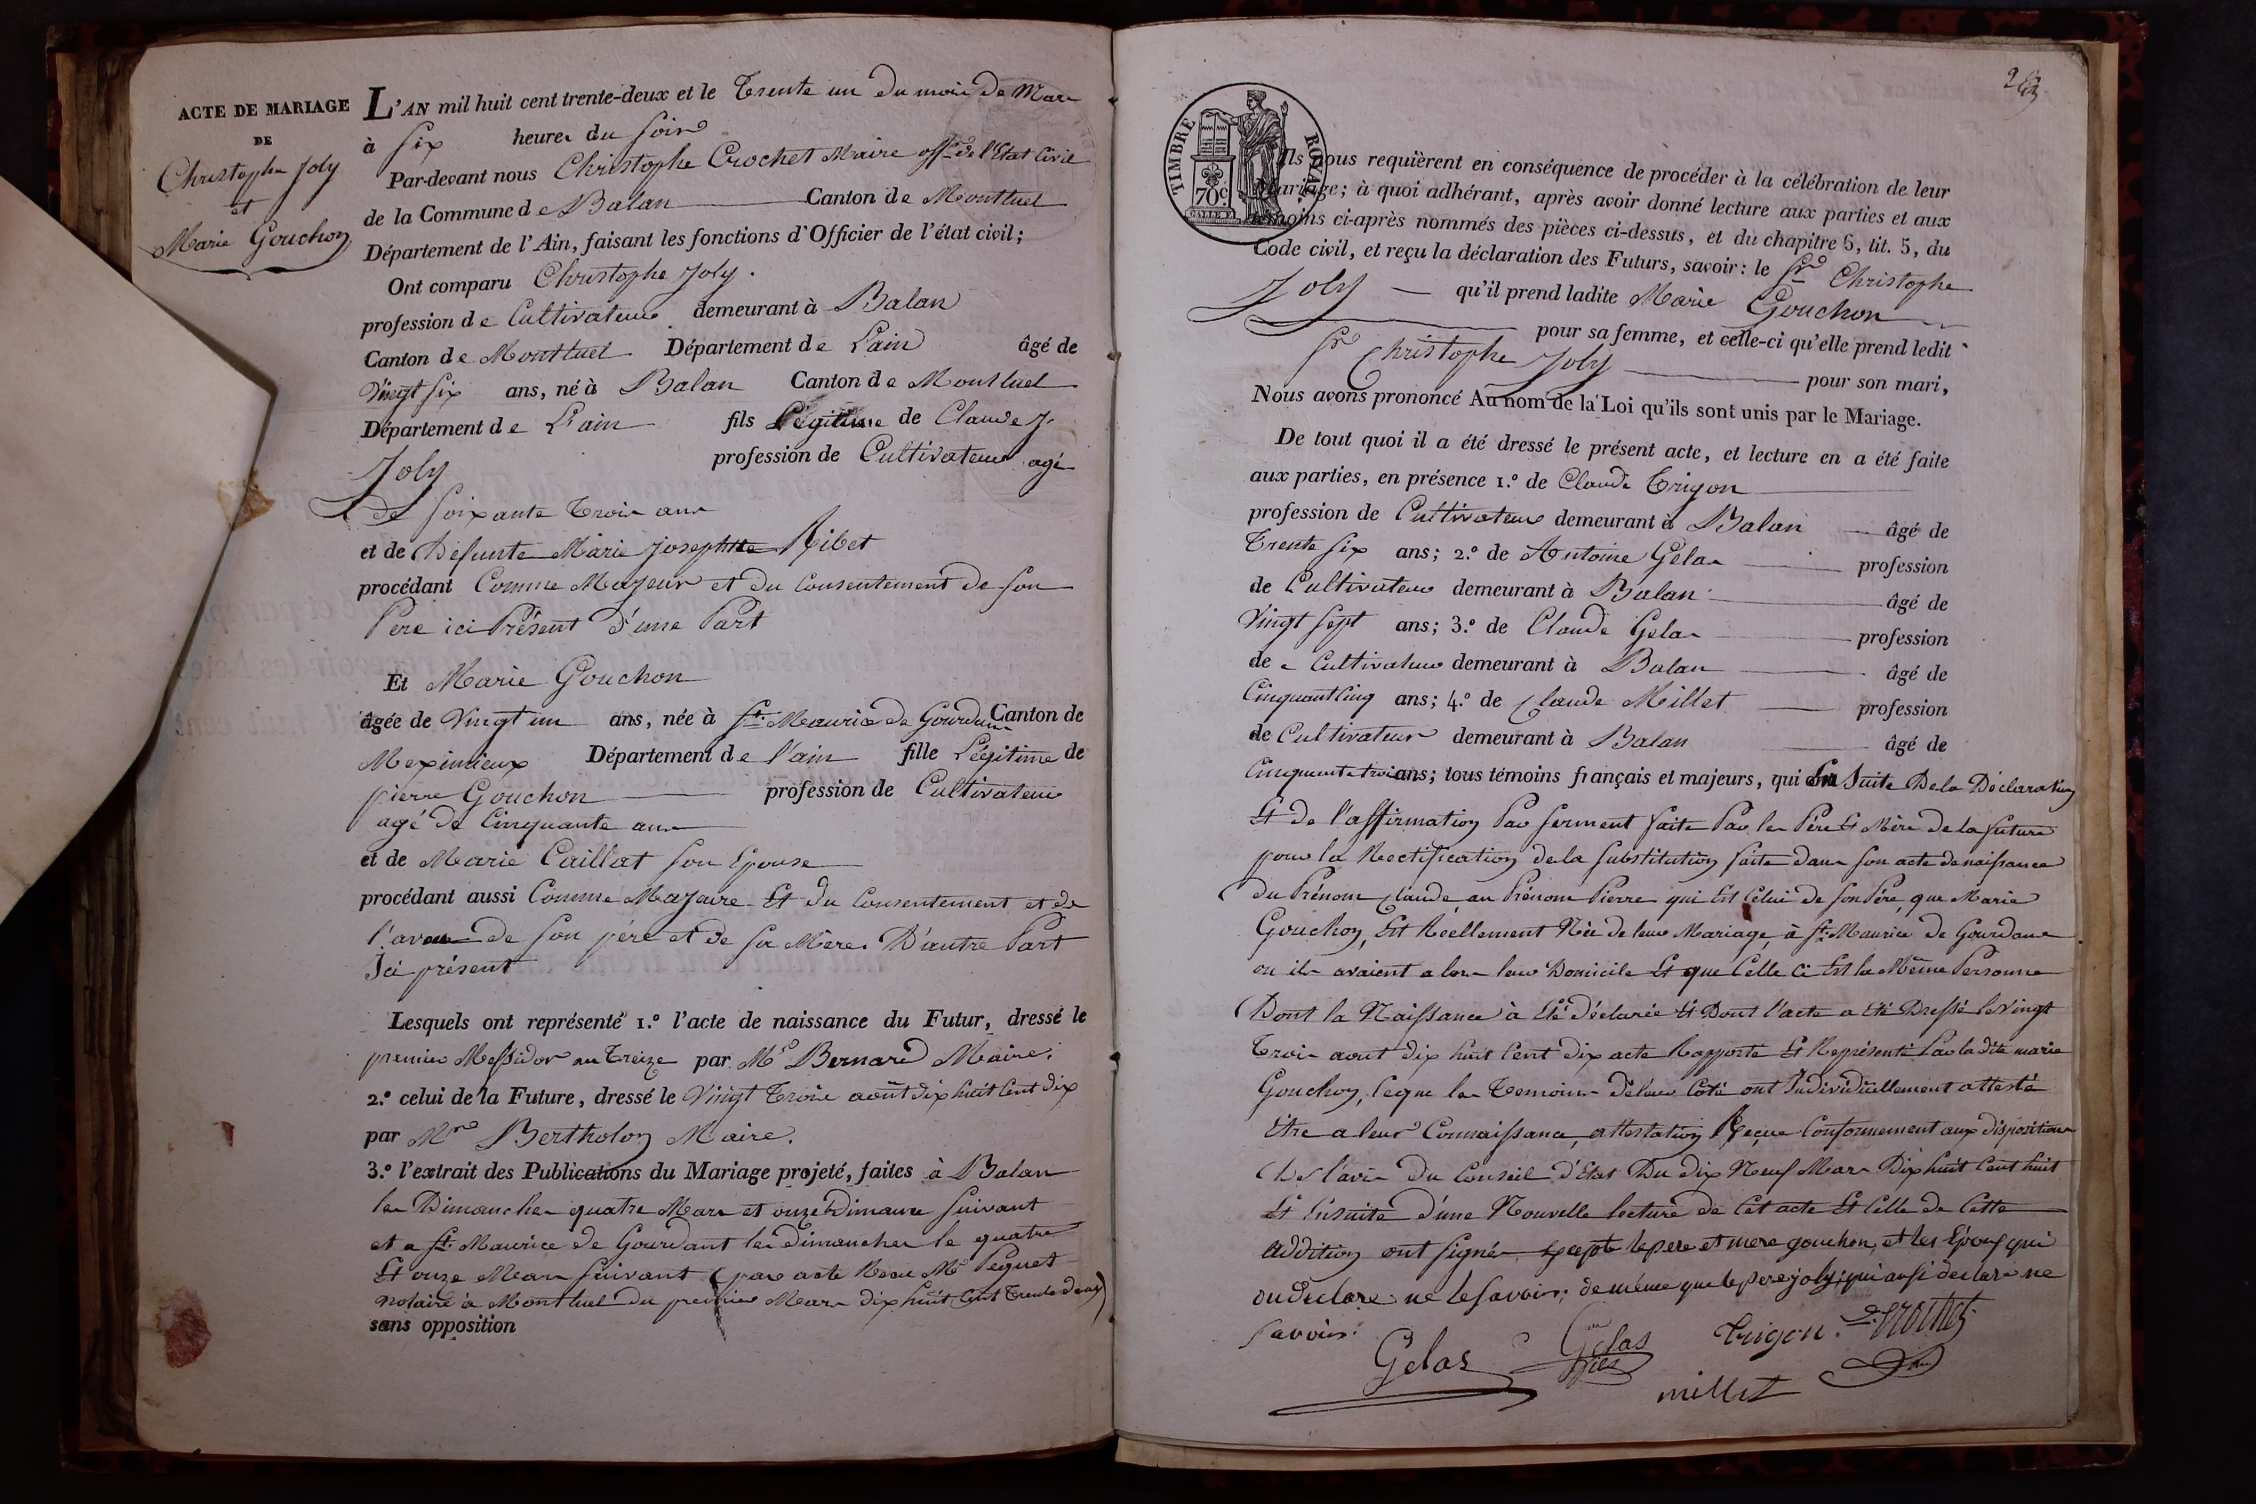 ACTE DE MARIAGE
DE
Christophe Joly
et
Marie Gouchon
L'AN mil huit cent trente-deux et le Trente un du mois de Mars
à Six heures du Soir
Par-devant nous Christophe Crochet Maire off. de l'Etat Civil
de la Commune de Balan Canton de Montluel
Département de l'Ain, faisant les fonctions d'Officier de l'état civil;
Ont comparu Christophe Joly.
profession de Cultivateur demeurant à Balan
Canton de Montluel Département de L'ain âgé de
Vingt Six ans, né à Balan Canton de Montluel
Département de L'ain fils Légitime de Claude J.
Joly profession de Cultivateur agé
de Soixante Trois ans
et de Défunte Marie Josephte Ribet
procédant Comme Majeur et du Consentement de Son
Pere ici Présent d'une Part
Et Marie Gouchon
âgée de Vingt un ans, née à St. Maurice de Gourdans Canton de
Meximieux Département de l'ain fille Légitime de
pierre Gouchon profession de Cultivateur
agé de Cinquante ans
et de Marie Caillat Son Epouse
procédant aussi Comme Majeure Et du Consentement et de
l'aveu de Son père et de Sa Mère. D'autre Part
Ici présent
Lesquels ont représenté 1.º l'acte de naissance du Futur, dressé le
premier Messidor an Treize par Mr Bernard Maire.
2.º celui de la Future, dressé le Vingt Trois août dix huit Cent dix
par Mr Bertholon Maire.
3.º l'extrait des Publications du Mariage projeté, faites à Balan
les Dimanches quatre Mars et onze Dimanche Suivant
et a St. Maurice de Gourdant les dimanches le quatre
Et onze Mars Suivant (par acte Reçu Me Peguet
notaire à Montluel du premier Mars dix huit Cent Trente deux)
sans opposition
TIMBRE ROYAL
70c
Ils nous requièrent en conséquence de procéder à la célébration de leur
Mariage; à quoi adhérant, après avoir donné lecture aux parties et aux
témoins ci-après nommés des pièces ci-dessus, et du chapitre 6, tit. 5, du
Code civil, et reçu la déclaration des Futurs, savoir: le Sr Christophe
Joly qu'il prend ladite Marie Gouchon
pour sa femme, et celle-ci qu'elle prend ledit
Sr Christophe Joly pour son mari,
Nous avons prononcé Au nom de la Loi qu'ils sont unis par le Mariage.
De tout quoi il a été dressé le présent acte, et lecture en a été faite
aux parties, en présence 1.º de Claude Trigon
profession de Cultivateur demeurant à Balan âgé de
Trente Six ans; 2.º de Antoine Gelas profession
de Cultivateur demeurant à Balan âgé de
Vingt Sept ans; 3.º de Claude Gelas profession
de Cultivateur demeurant à Balan âgé de
Cinquant Cinq ans; 4.º de Claude Millet profession
de Cultivateur demeurant à Balan âgé de
Cinquante trois ans; tous témoins français et majeurs, qui En Suite De la Déclaration
Et de l'affirmation Par Serment faite Par les Père Et Mère de la future
pour la Rectification de la Substitution faite dans Son acte de naissance
du Prénom Claude au Prénom Pierre qui Est Celui de Son Père, que Marie
Gouchon, Est Réellement Née de leur Mariage, à St. Maurice de Gourdans
ou ils avaient alors leur Domicile Et que Celle Ci Est la Même Personne
Dont la Naissance à Eté déclarée Et Dont l'acte a Eté Dressé le Vingt
Trois aout dix huit Cent dix acte Rapporté Et Représenté Par la dite marie
Gouchon, Ceque les Temoins De leur Coté ont Individuellement attesté
Etre a leur Connaissance, attestation Reçue Conformement aux dispositions
De l'avis du Conseil d'Etat Du dix Neuf Mars Dix huit Cent huit
Et Ensuite d'une Nouvelle lecture de Cet acte Et Celle de Cette
addition ont Signés Excepté le pere et mere gouchon, et les Epoux qui
ou declare ne le Savoir; de même que le pere joly; qui aussi declare ne
Savoir.
Gelas Gelas Trigon. Crochet
fils
millet